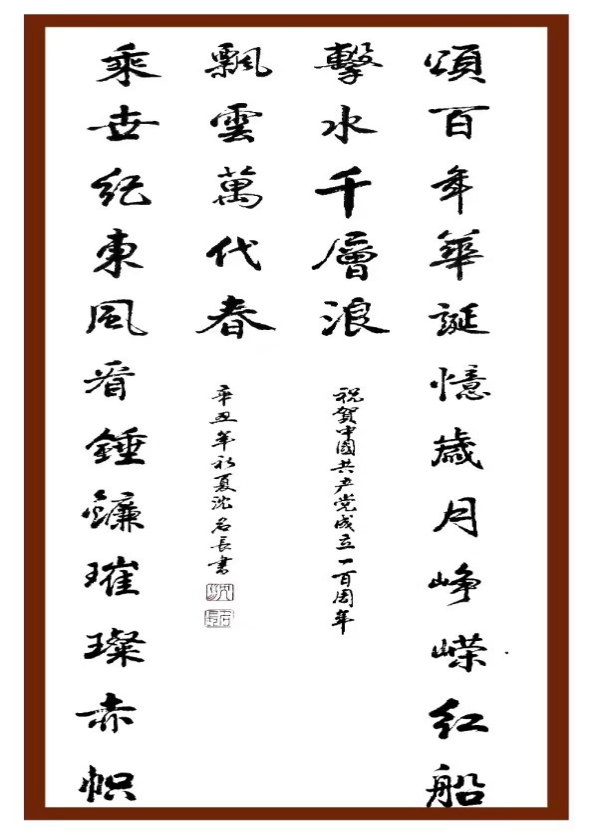 頌百年華誕憶歲月峥嵘紅船
擊水千層浪
祝賀中國共产党成立一百周年
乘世紀東風看錘鐮璀璨赤帜
飄雲萬代春
辛丑年初夏沈名長書